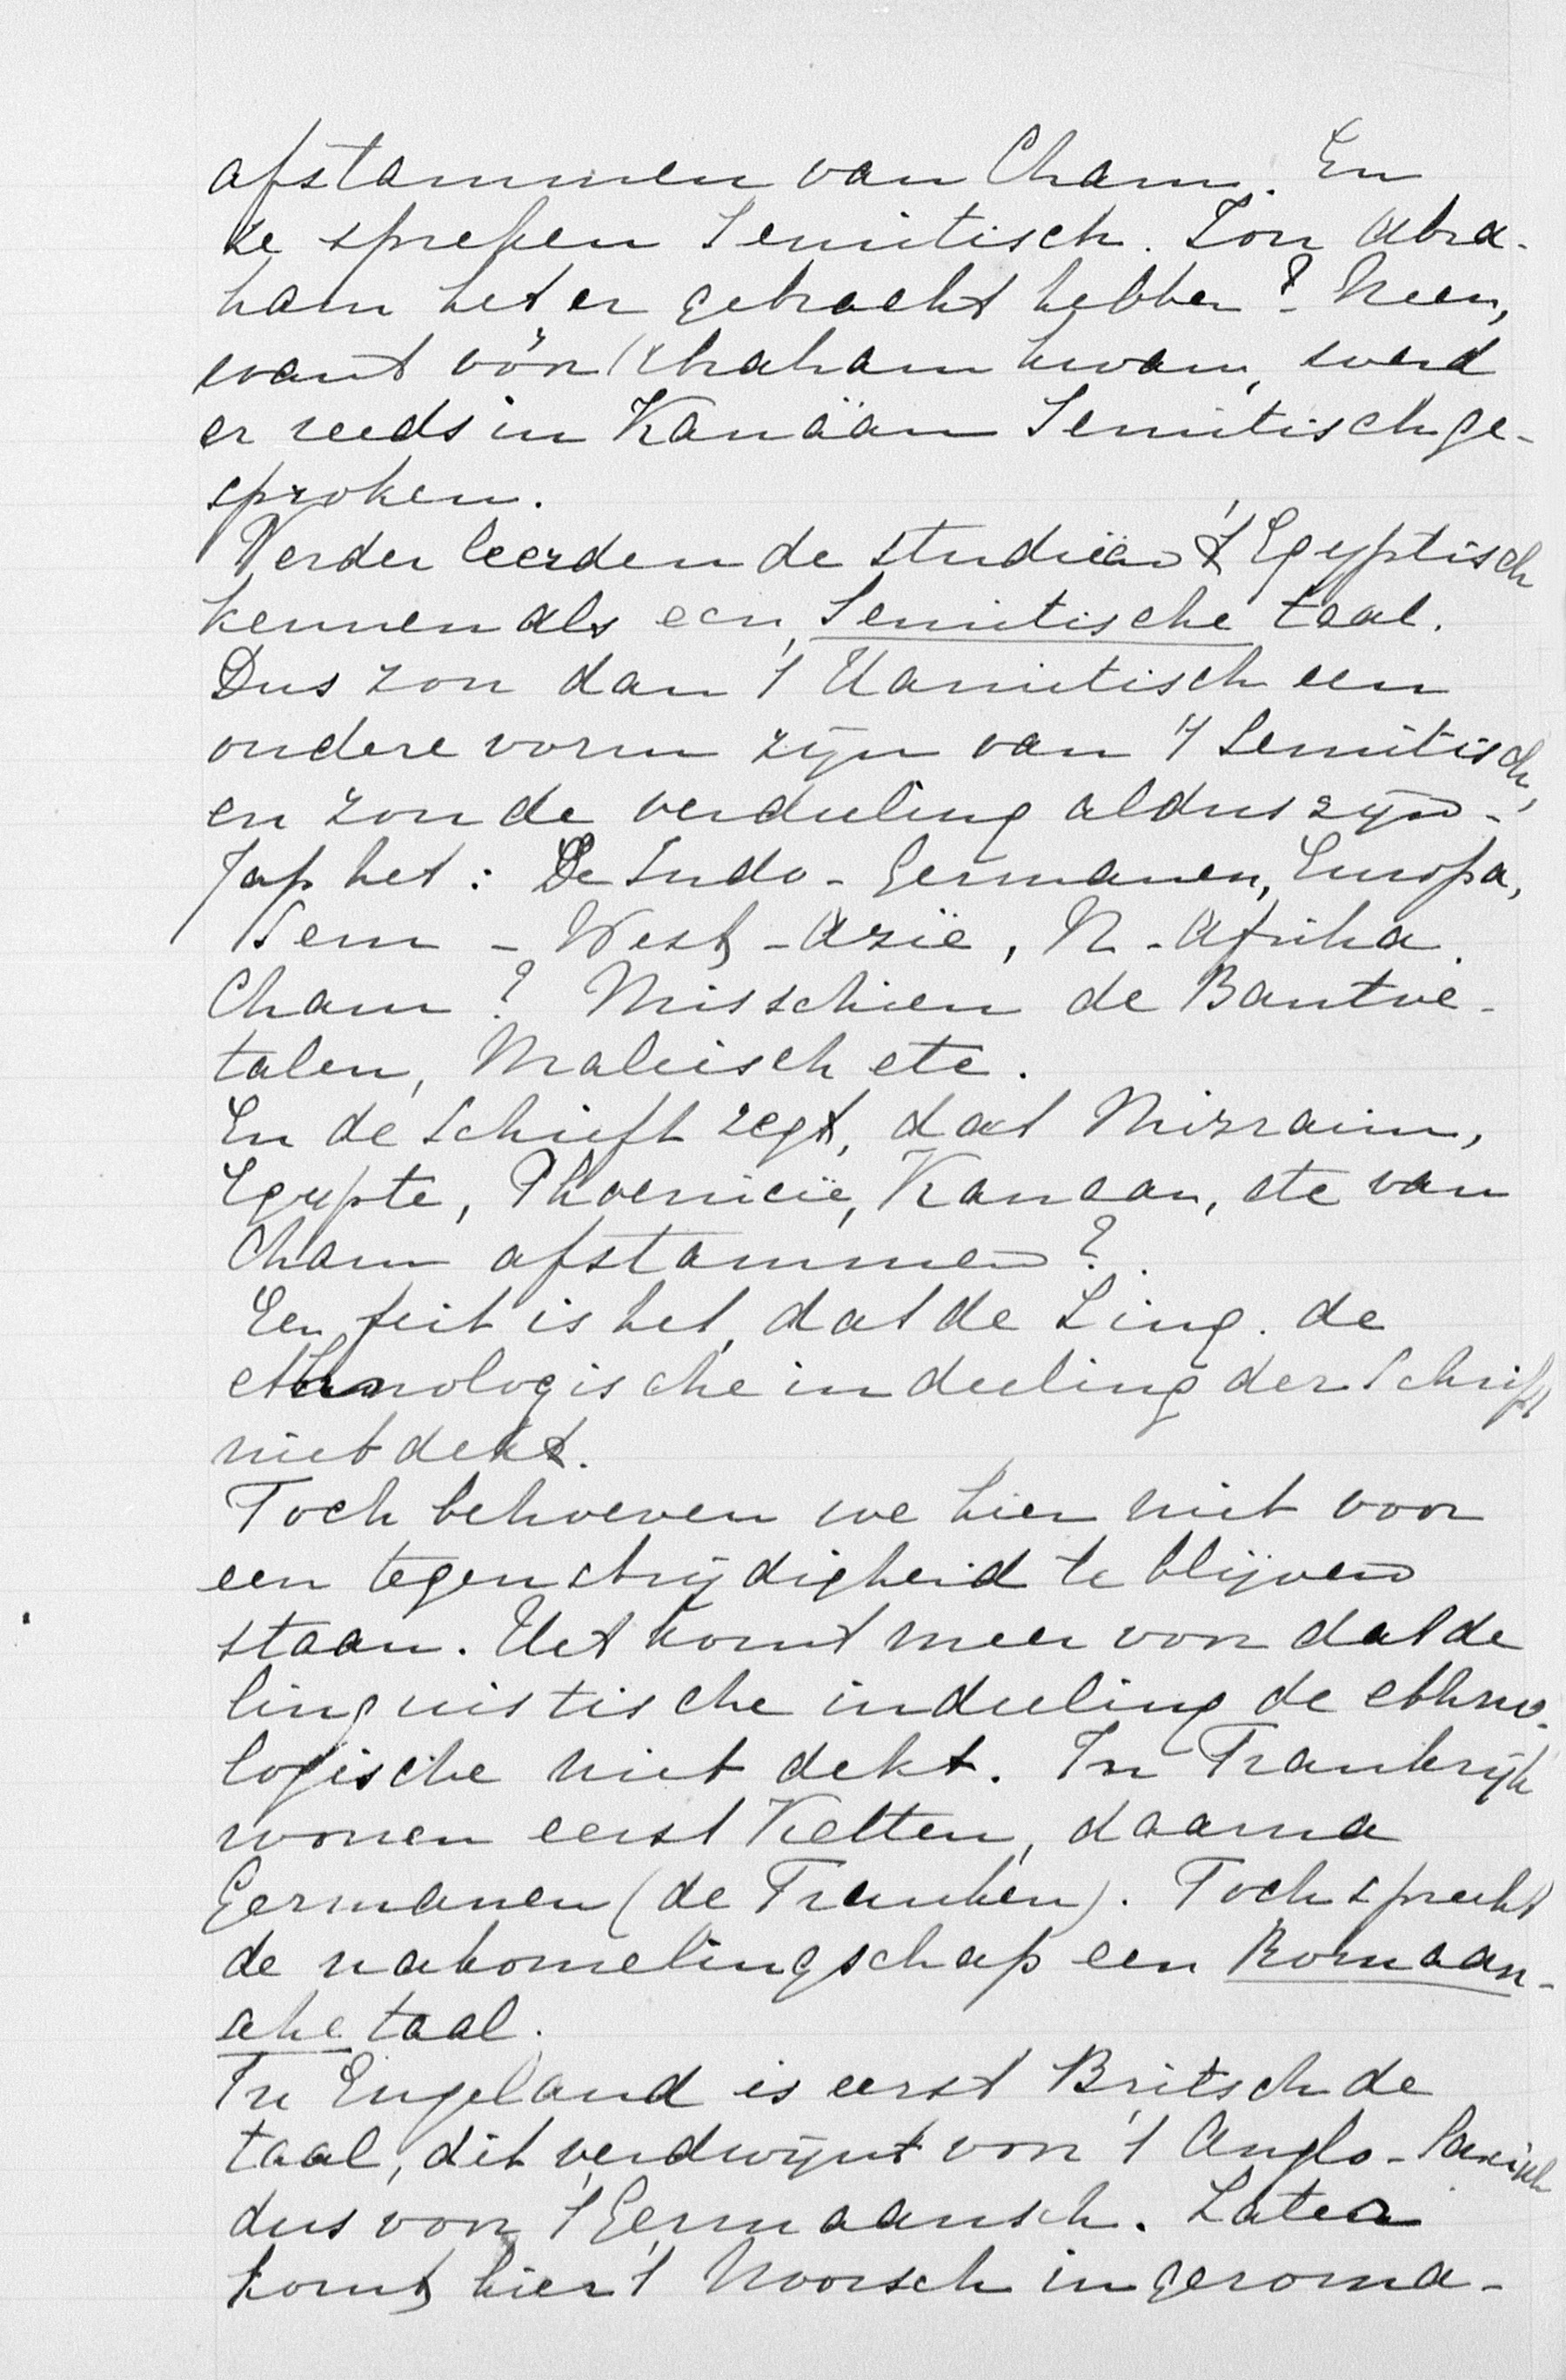 afstammen van Cham. En
ze spreken Semitisch. Zou Abra-
ham het er gebracht hebben? Neen,
want vóór Abraham kwam, werd
er reeds in Kanäan Semitisch ge-
sproken.
Verder leerden de studiën 't Egyptisch
kennen als een Semitische taal.
Dus zou dan 't Hamitisch een
oudere vorm zijn van 't Semitisch,
en zou de verdeeling aldus zijn -
Japhet: De Indo-Germanen, Europa,
Sem - West-Azië, N-Afrika.
Cham? Misschien de Bantoe-
talen, Maleisch etc.
En de Schrift zegt, dat Mizraim,
Egypte, Phoenicië, Kanaan, etc van
Cham afstammen?
Een feit is het, dat de Ling. de
ethnologische indeeling der Schrift
niet dekt.
Toch behoeven we hier niet voor
een tegenstrijdigheid te blijven
staan. Het komt meer voor dat de
linguistische indeeling de ethno-
logische niet dekt. In Frankrijk
wonen eerst Kelten, daarna
Germanen (de Franken). Toch spreekt
de nakomelingschap een Romaan-
sche taal.
In Engeland is eerst Britsch de
taal, dit verdwijnt voor 't Anglo-Saxisch
dus voor 't Germaansch. Later
komt hier 't Noorsch in geroma-